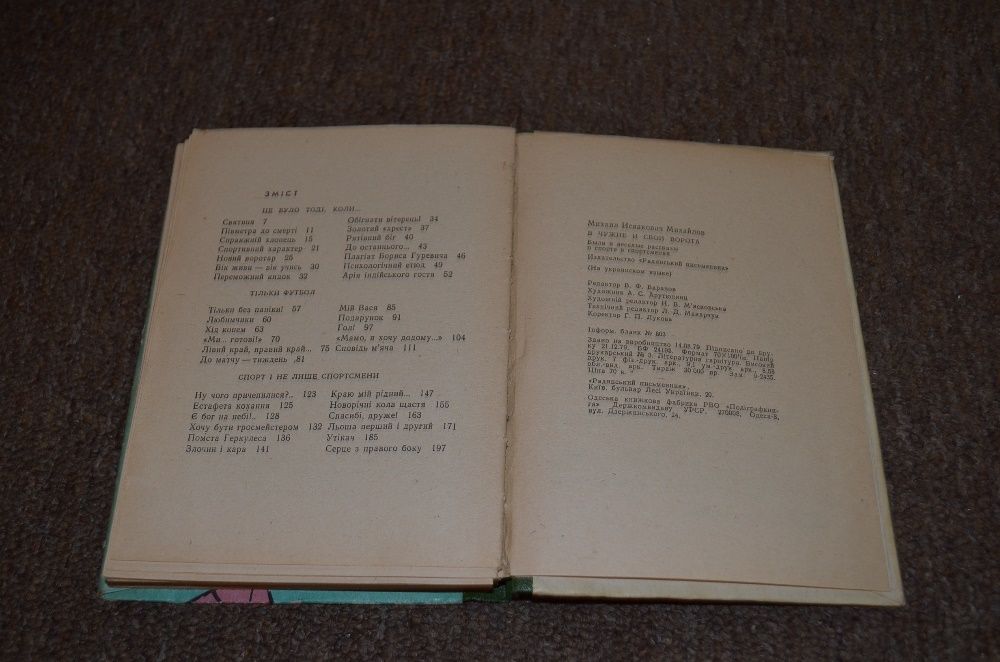 ЗМІСТ
ЦЕ БУЛО ТОДІ, КОЛИ...
Святиня 7
Півметра до смерті 11
Справжній хлопець 15
Спортивний характер 21
Новий воротар 25
Вік живи — вік учись 30
Переможний кидок 32
Обігнати вітерець! 34
Золотий 37
Рятівний біг 40
До останнього... 43
Плагіат Бориса Гуревича 46
Психологічний етюд 49
Арія індійського гостя 52
ТІЛЬКИ ФУТБОЛ
Тільки без паніки! 57
Любимчики 60
Хід конем 63
«Ми готові!» 70
Лівий край, правий край... 75
До матчу — тиждень 81
Мій Вася 85
Подарунок 91
Голі 97
«Мамо, я хочу додому...» 104
Сповідь м'яча 111
СПОРТ І НЕ ЛИШЕ СПОРТСМЕНИ
Ну чого причепилися?.. 123
Естафета кохання 125
Є бог на небі!.. 128
Хочу бути гросмейстером 132
Помста Геркулеса 136
Злочин і кара 141
Краю мій рідний... 147
Новорічні кола щастя 155
Спасибі, друже! 163
Льоша перший і другий 171
Утікач 185
Серце з правого боку 197
Михаил Исаакович Михайлов
В ЧУЖИЕ И СВОИ ВОРОТА
Были и веселые рассказы
о спорте и спортсменах
Издательство «Радянський письменник»
(На украинском языке)
Редактор В. Ф. Баранов
Художник А. С. Арутюнянц
Художній редактор Н. В. М'ясковська
Технічний редактор Л. Д. Макарчук
Коректор Г. П. Лукова
Інформ. бланк № 803
Здано на виробництво 14.08.79 Підписано до дру-
ку 21.12.79. БФ 04190. Формат 70×100¹/₃₂. Папір
друкарський № 3. Літературна гарнітура. Високий
друк. 7 фіз.-друк. арк. 9,1 ум.-друк. арк., 8,88
обл.-вид. арк. Тираж 30 000 пр. Зам. 9-2435.
Ціна 70 к.
«Радянський письменник»,
Київ, бульвар Лесі Українки, 20.
Одеська книжкова фабрика РВО «Поліграфкни-
га» Держкомвидаву УРСР, 270008, Одеса-8,
вул. Дзержинського, 24.